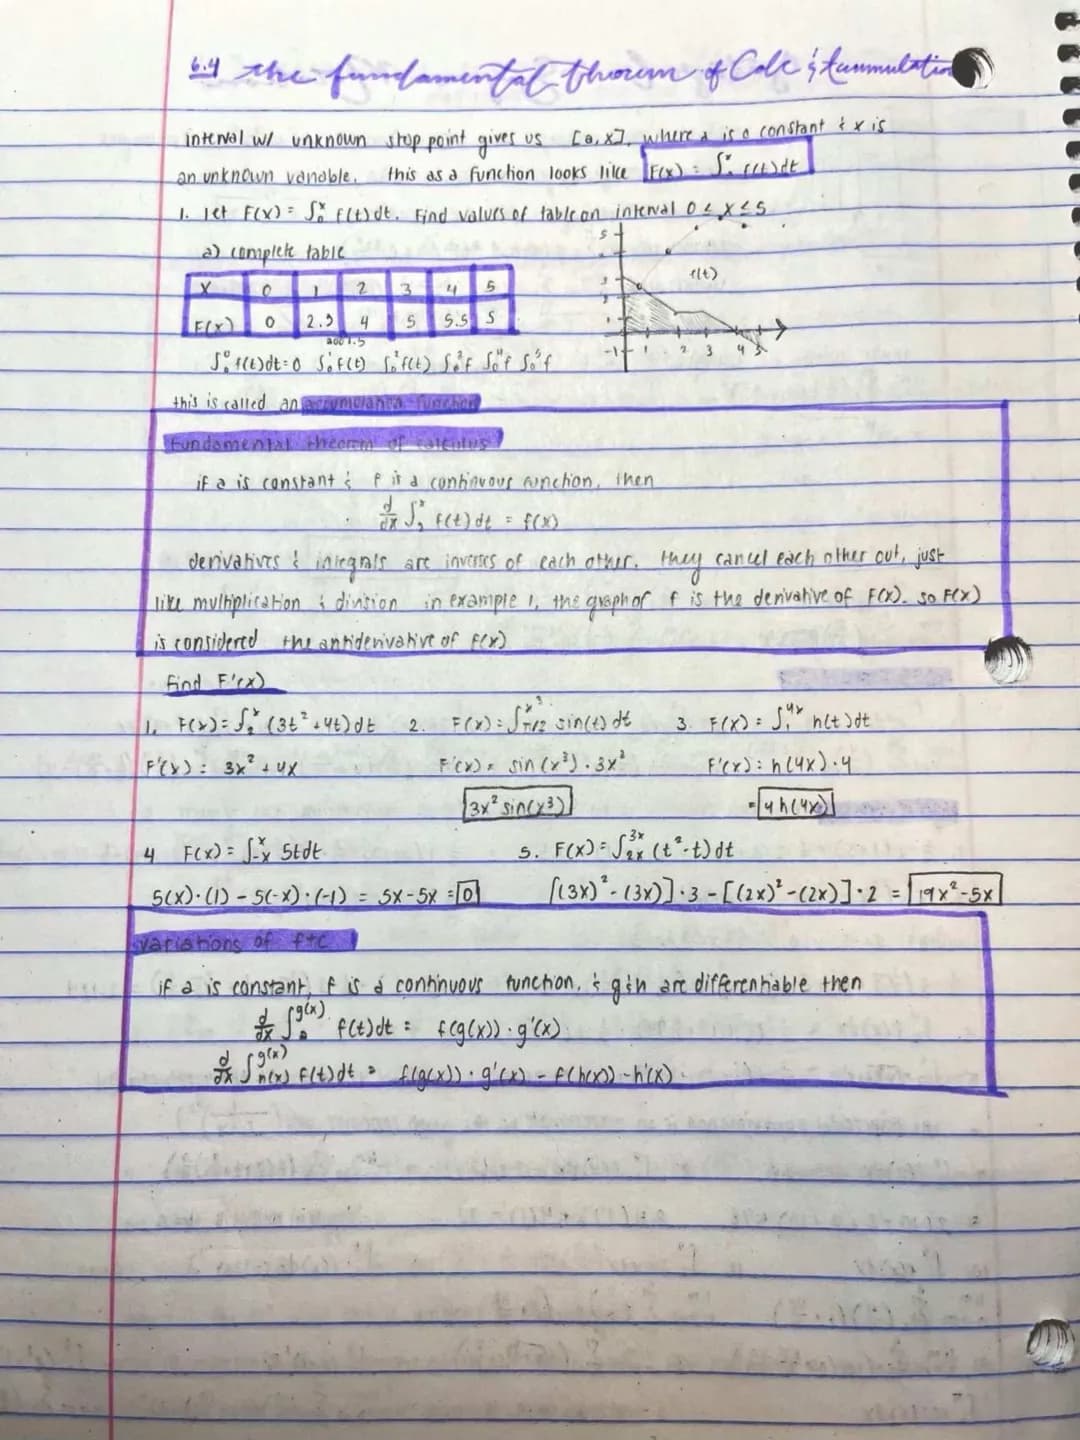 6.4 the fundamental theorem of Calc & Accumulation
interval w/ unknown stop point gives us [a,x], where a is a constant & x is
an unknown variable. this as a function looks like F(x) = ∫ₐˣ f(t)dt
1. let F(x) = ∫₀ˣ f(t)dt. Find values of table on interval 0 ≤ x ≤ 5
a) complete table
x 0 1 2 3 4 5
F(x) 0 2.5 4 5 5.5 5
add 1.5
∫₀⁰ f(t)dt=0 ∫₀¹ f(t) ∫₀² f(t) ∫₀³ f ∫₀⁴ f ∫₀⁵ f
5
3
2
1
-1
1 2 3 4 5
f(t)
this is called an accumulation function
fundamental theorem of calculus
if a is constant & f is a continuous function, then
d/dx ∫ₐˣ f(t)dt = f(x)
derivatives & integrals are inverses of each other. they cancel each other out, just
like multiplication & division in example 1, the graph of f is the derivative of F(x). so F(x)
is considered the antiderivative of f(x)
find F'(x)
1. F(x) = ∫₂ˣ (3t² + 4t)dt 2. F(x) = ∫_{π/2}^{x³} sin(t) dt 3. F(x) = ∫₁^{4x} h(t)dt
F'(x) = 3x² + 4x F'(x) = sin(x³) · 3x² F'(x) = h(4x) · 4
3x² sin(x³) = 4h(4x)
4 F(x) = ∫₋ₓˣ 5tdt 5. F(x) = ∫_{2x}^{3x} (t²-t)dt
5(x)·(1) - 5(-x)·(-1) = 5x-5x = 0 [(3x)² - (3x)]·3 - [(2x)² - (2x)]·2 = 19x²-5x
variations of ftc
if a is constant, f is a continuous function, & g & h are differentiable then
d/dx ∫ₐ^{g(x)} f(t)dt = f(g(x)) · g'(x)
d/dx ∫_{h(x)}^{g(x)} f(t)dt = f(g(x)) · g'(x) - f(h(x)) - h'(x)